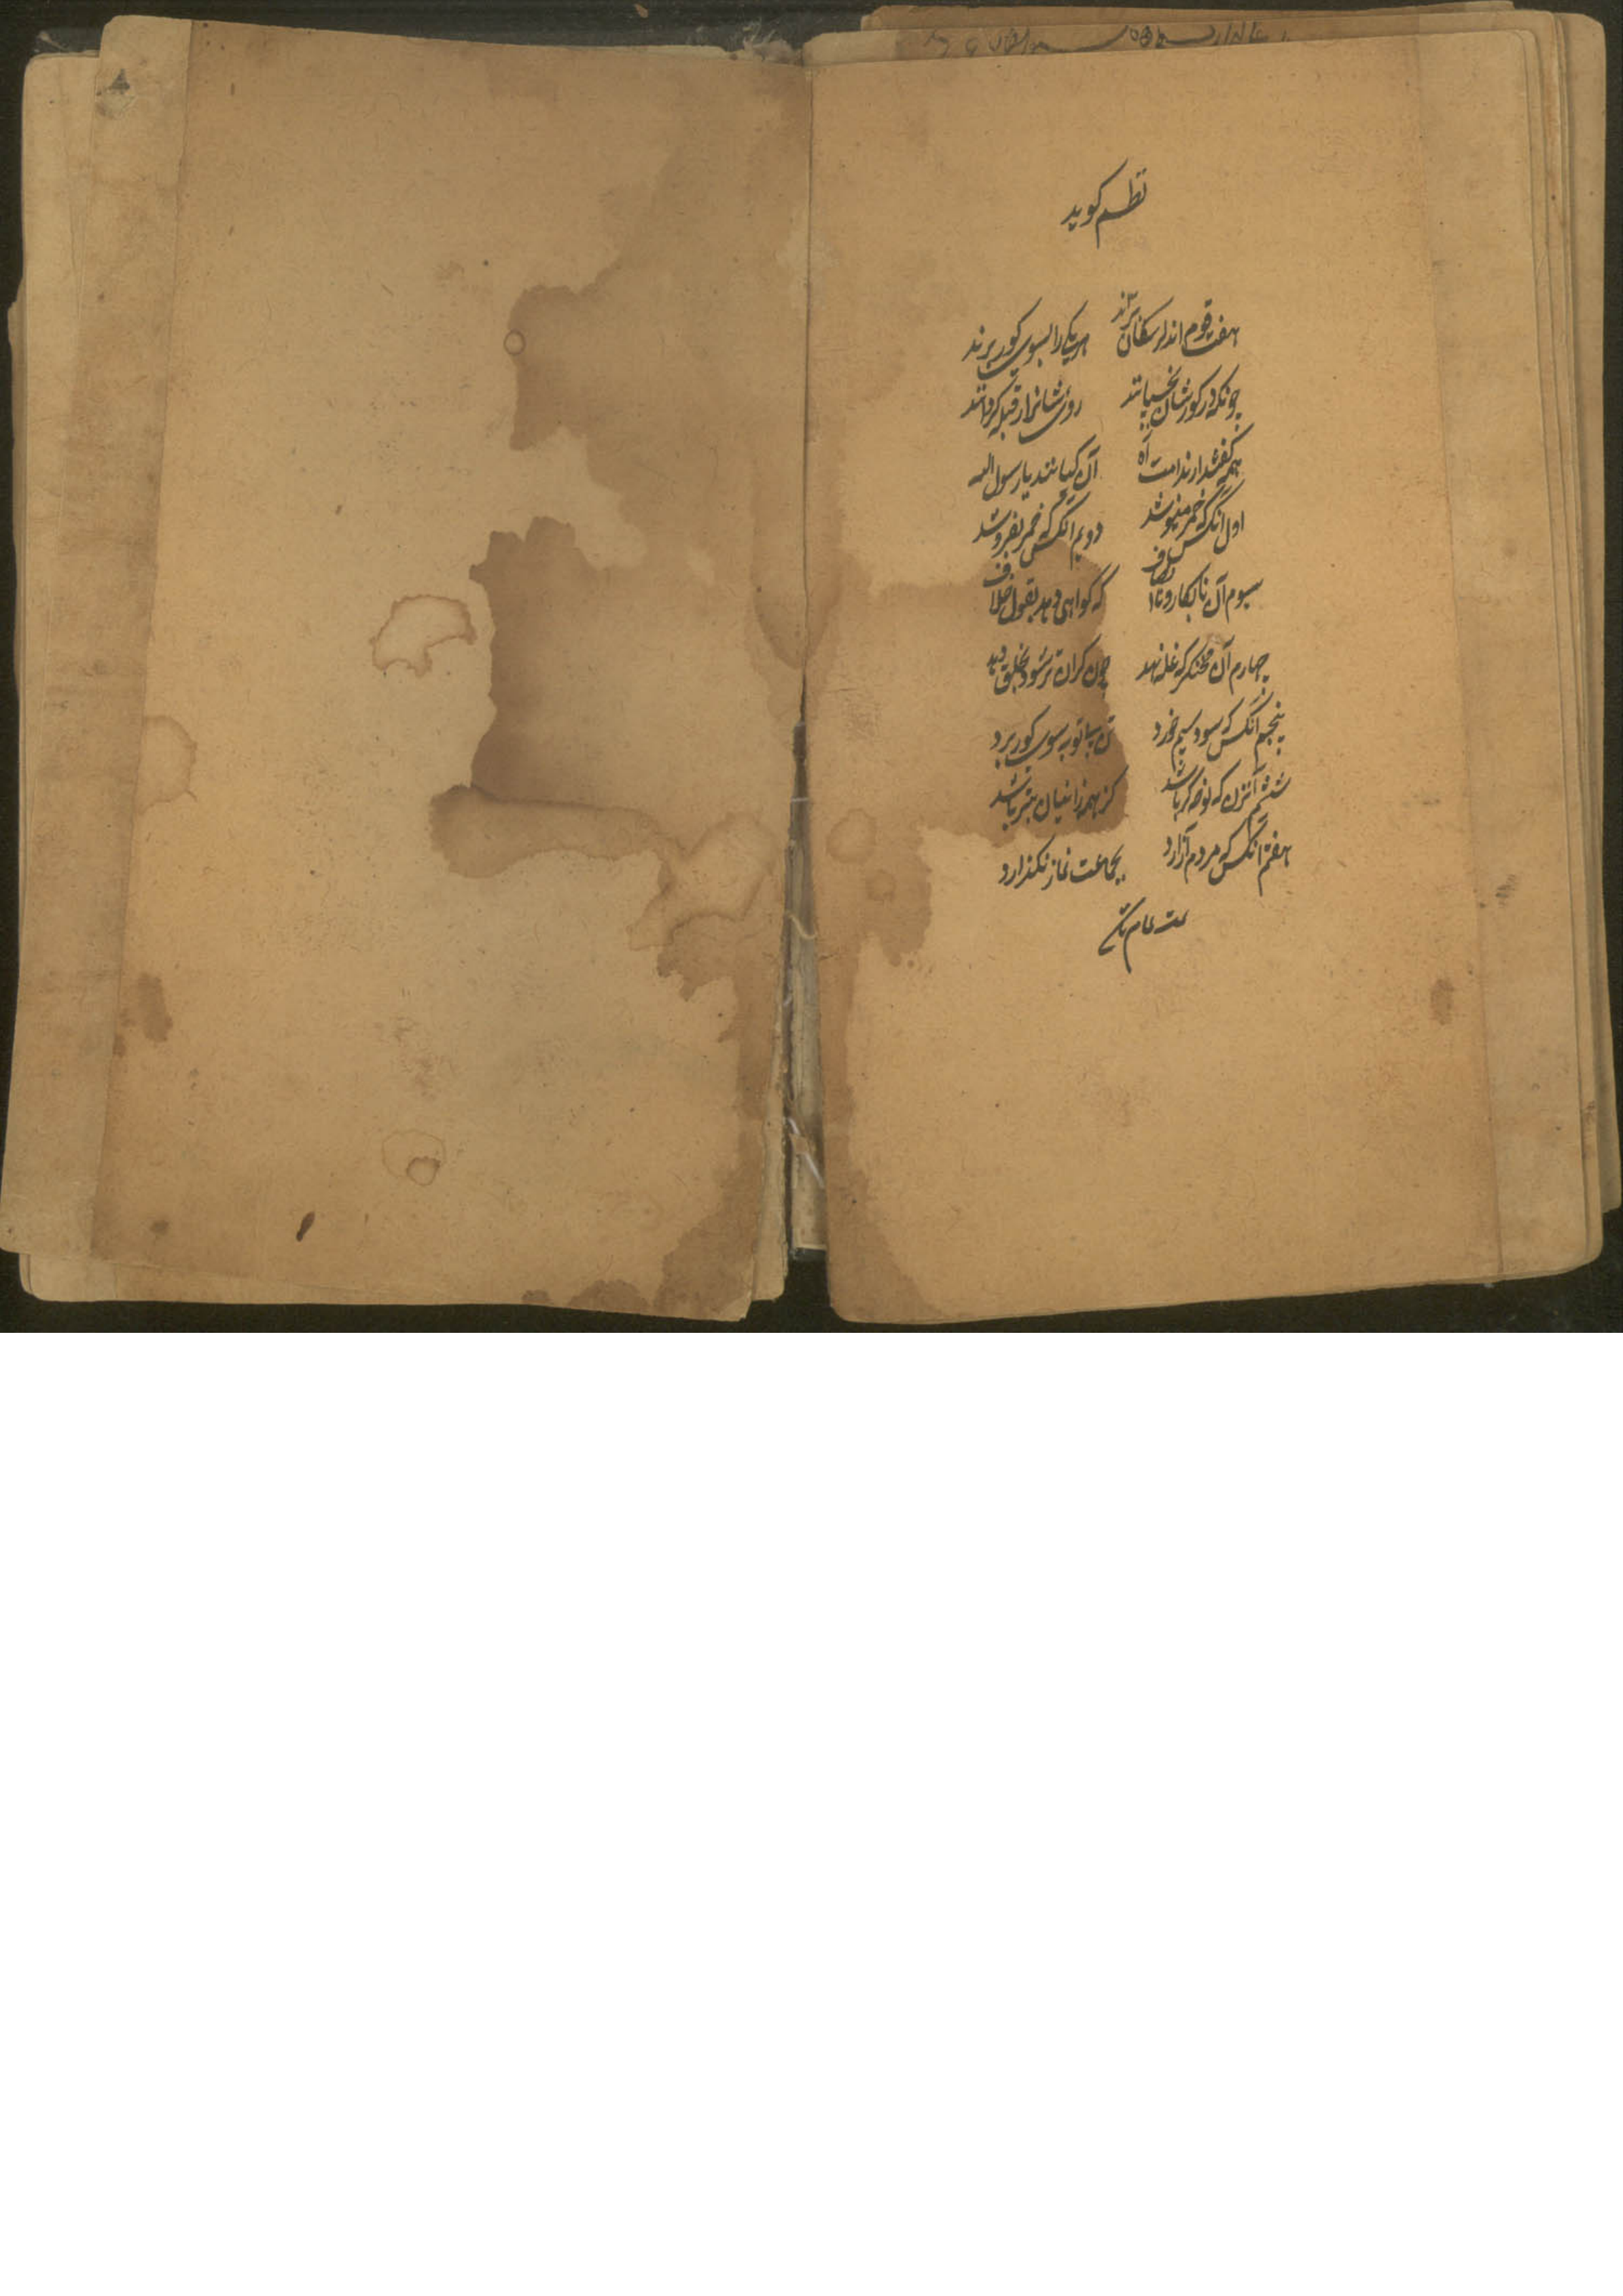 نظم کوید
هفت قوم اندر سکان برند هر یکی را بسوی کور برند
چونکه در کورشان بخسپانند روی شانرا ز قبله کردانند
همه کفتند ارند امت آه آن کیانند یا رسول الله
اول آنکس که خمر مینوشد دویم آنکس که خمر بفروشد
سیوم آن نابکار و نا که کواهی دهد بقول خلاف
چهارم آن محتکر که غله نهد چون کران تر شود بخلق دهد
پنجم آنکس که سود سیم خورد تن بی توبه سوی کور برد
ششم آنزن که نوحه کر باشد کز همه زانیان بتر باشد
هفتم آنکس که مردم آزارد بجماعت نماز نکذارد
تمت تمام